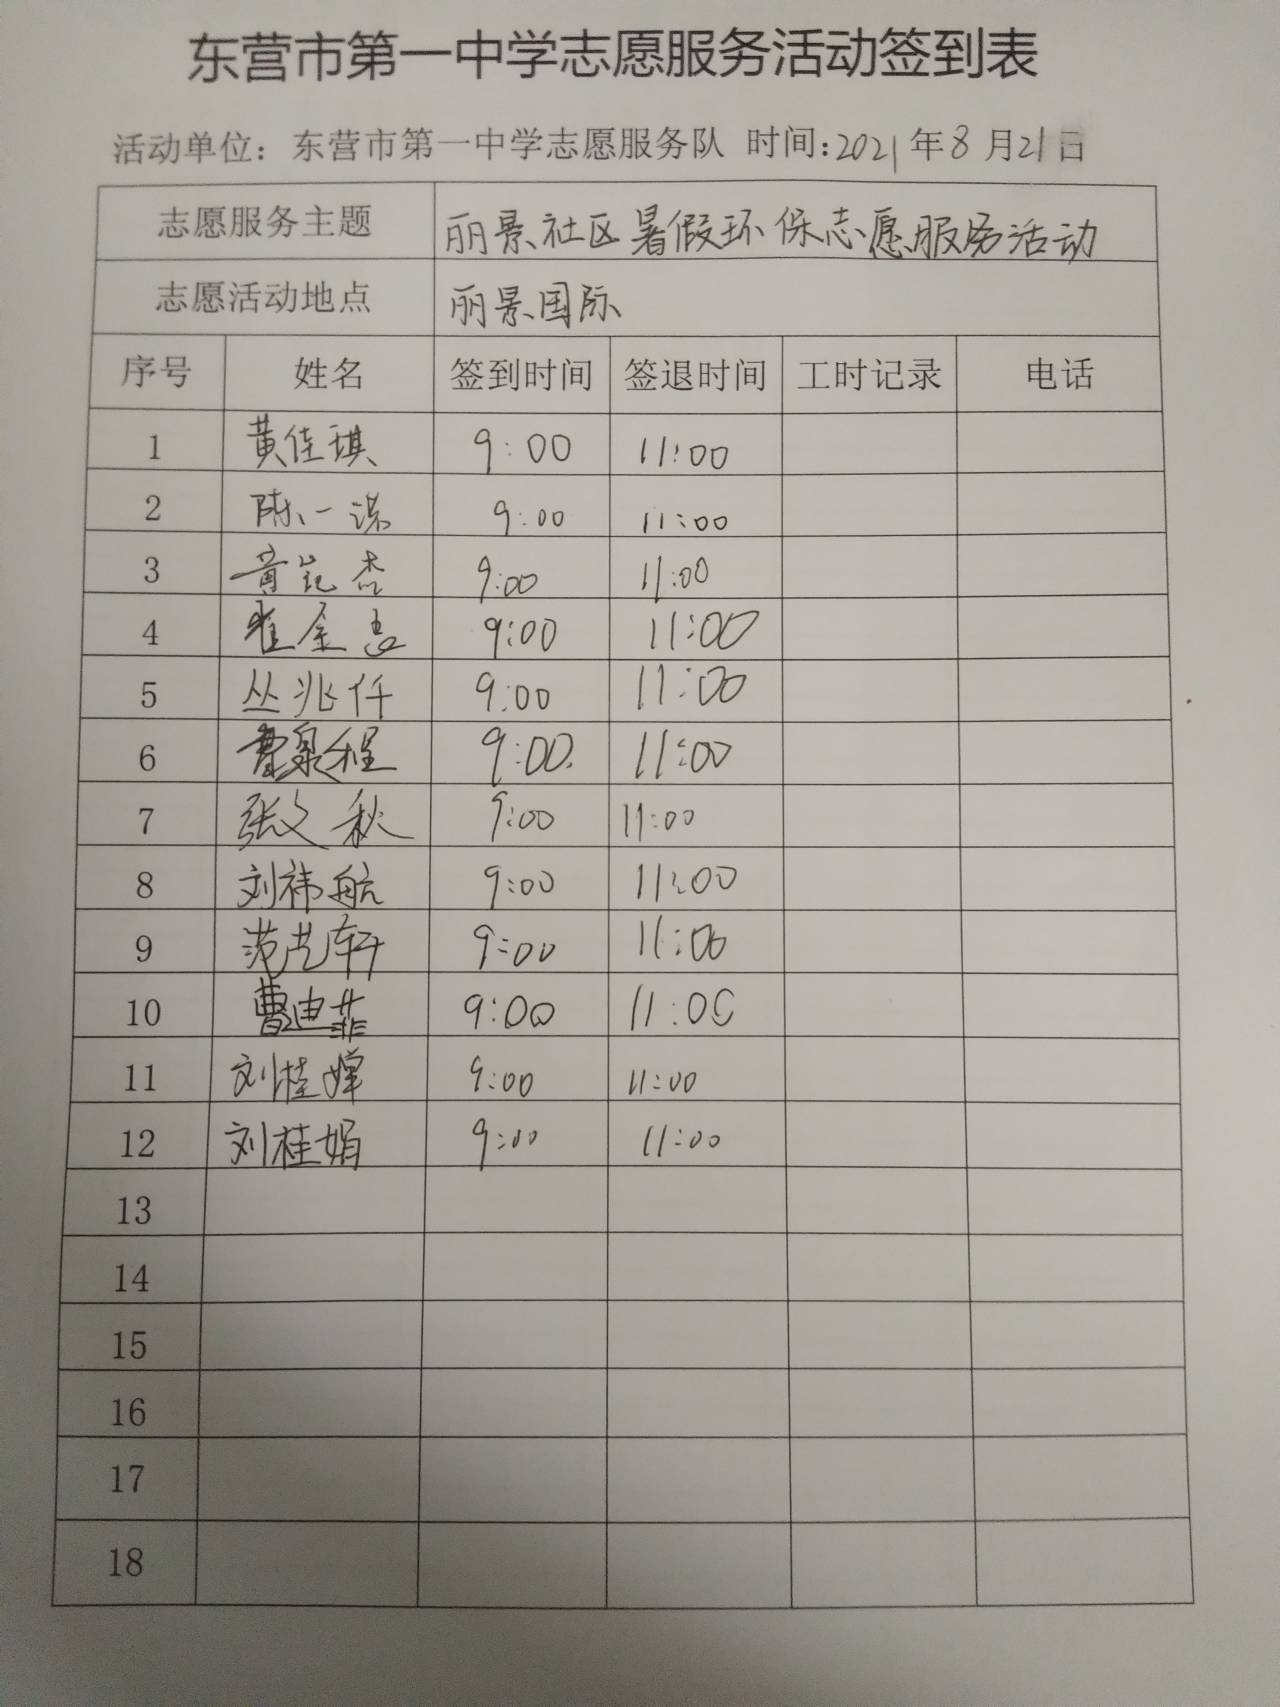 东营市第一中学志愿服务活动签到表
活动单位：东营市第一中学志愿服务队 时间：2021年8月21日
志愿服务主题 丽景社区暑假环保志愿服务活动
志愿活动地点 丽景国际
序号 姓名 签到时间 签退时间 工时记录 电话
1 黄佳琪 9:00 11:00
2 陈一诺 9:00 11:00
3 9:00 11:00
4 9:00 11:00
5 丛兆仟 9:00 11:00
6 9:00 11:00
7 张文秋 9:00 11:00
8 刘祎航 9:00 11:00
9 范艺轩 9:00 11:00
10 曹迪菲 9:00 11:00
11 刘桂婵 9:00 11:00
12 刘桂娟 9:00 11:00
13
14
15
16
17
18